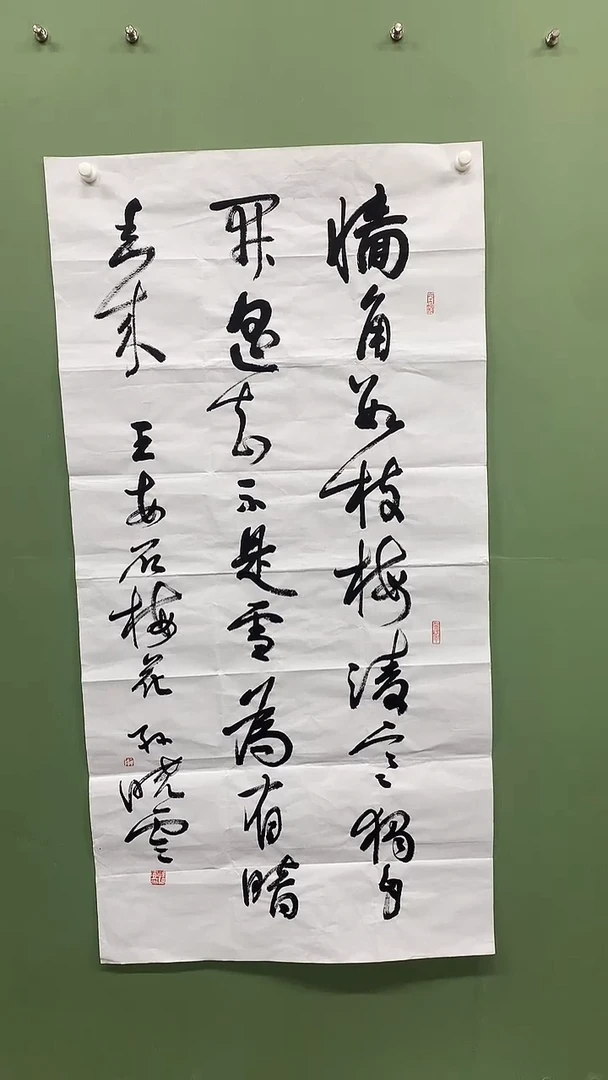 墙角数枝梅凌寒独自
开遥知不是雪为有暗
香来 王安石梅花 孙晓云